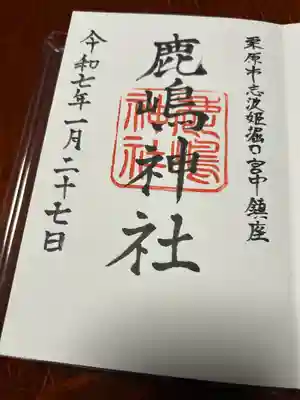 栗原市志波姫堀口宮中鎮座
鹿嶋神社
鹿嶋神社
令和七年一月二十七日